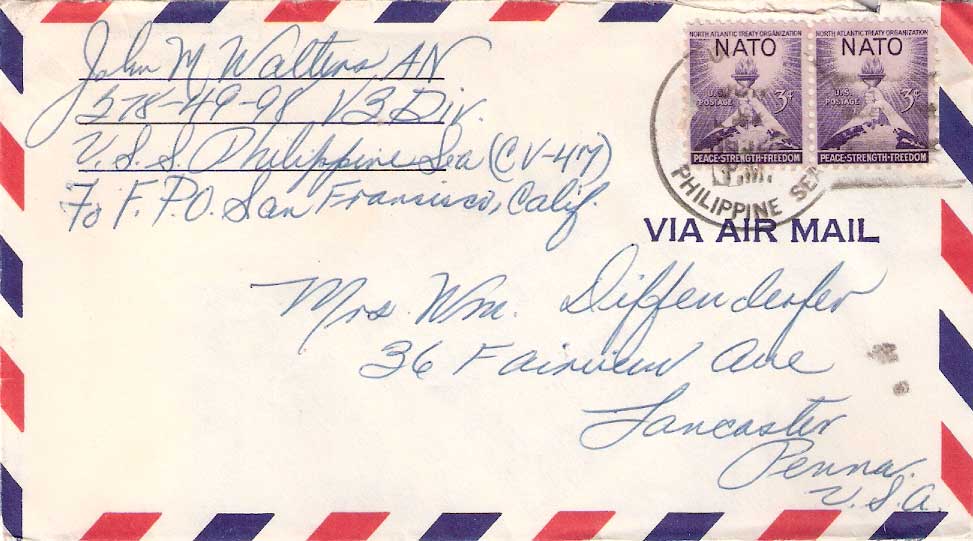 John M Walters AN
578-49-98 V3 Div.
U.S.S. Philippine Sea (CV-47)
℅ F.P.O. San Francisco, Calif.
NORTH ATLANTIC TREATY ORGANIZATION
NATO
U.S. POSTAGE 3¢
PEACE·STRENGTH·FREEDOM
NORTH ATLANTIC TREATY ORGANIZATION
NATO
U.S. POSTAGE 3¢
PEACE·STRENGTH·FREEDOM
P.M.
PHILIPPINE SEA
VIA AIR MAIL
Mrs. Wm. Diffenderfer
36 Fairview Ave
Lancaster
Penna.
U.S.A.